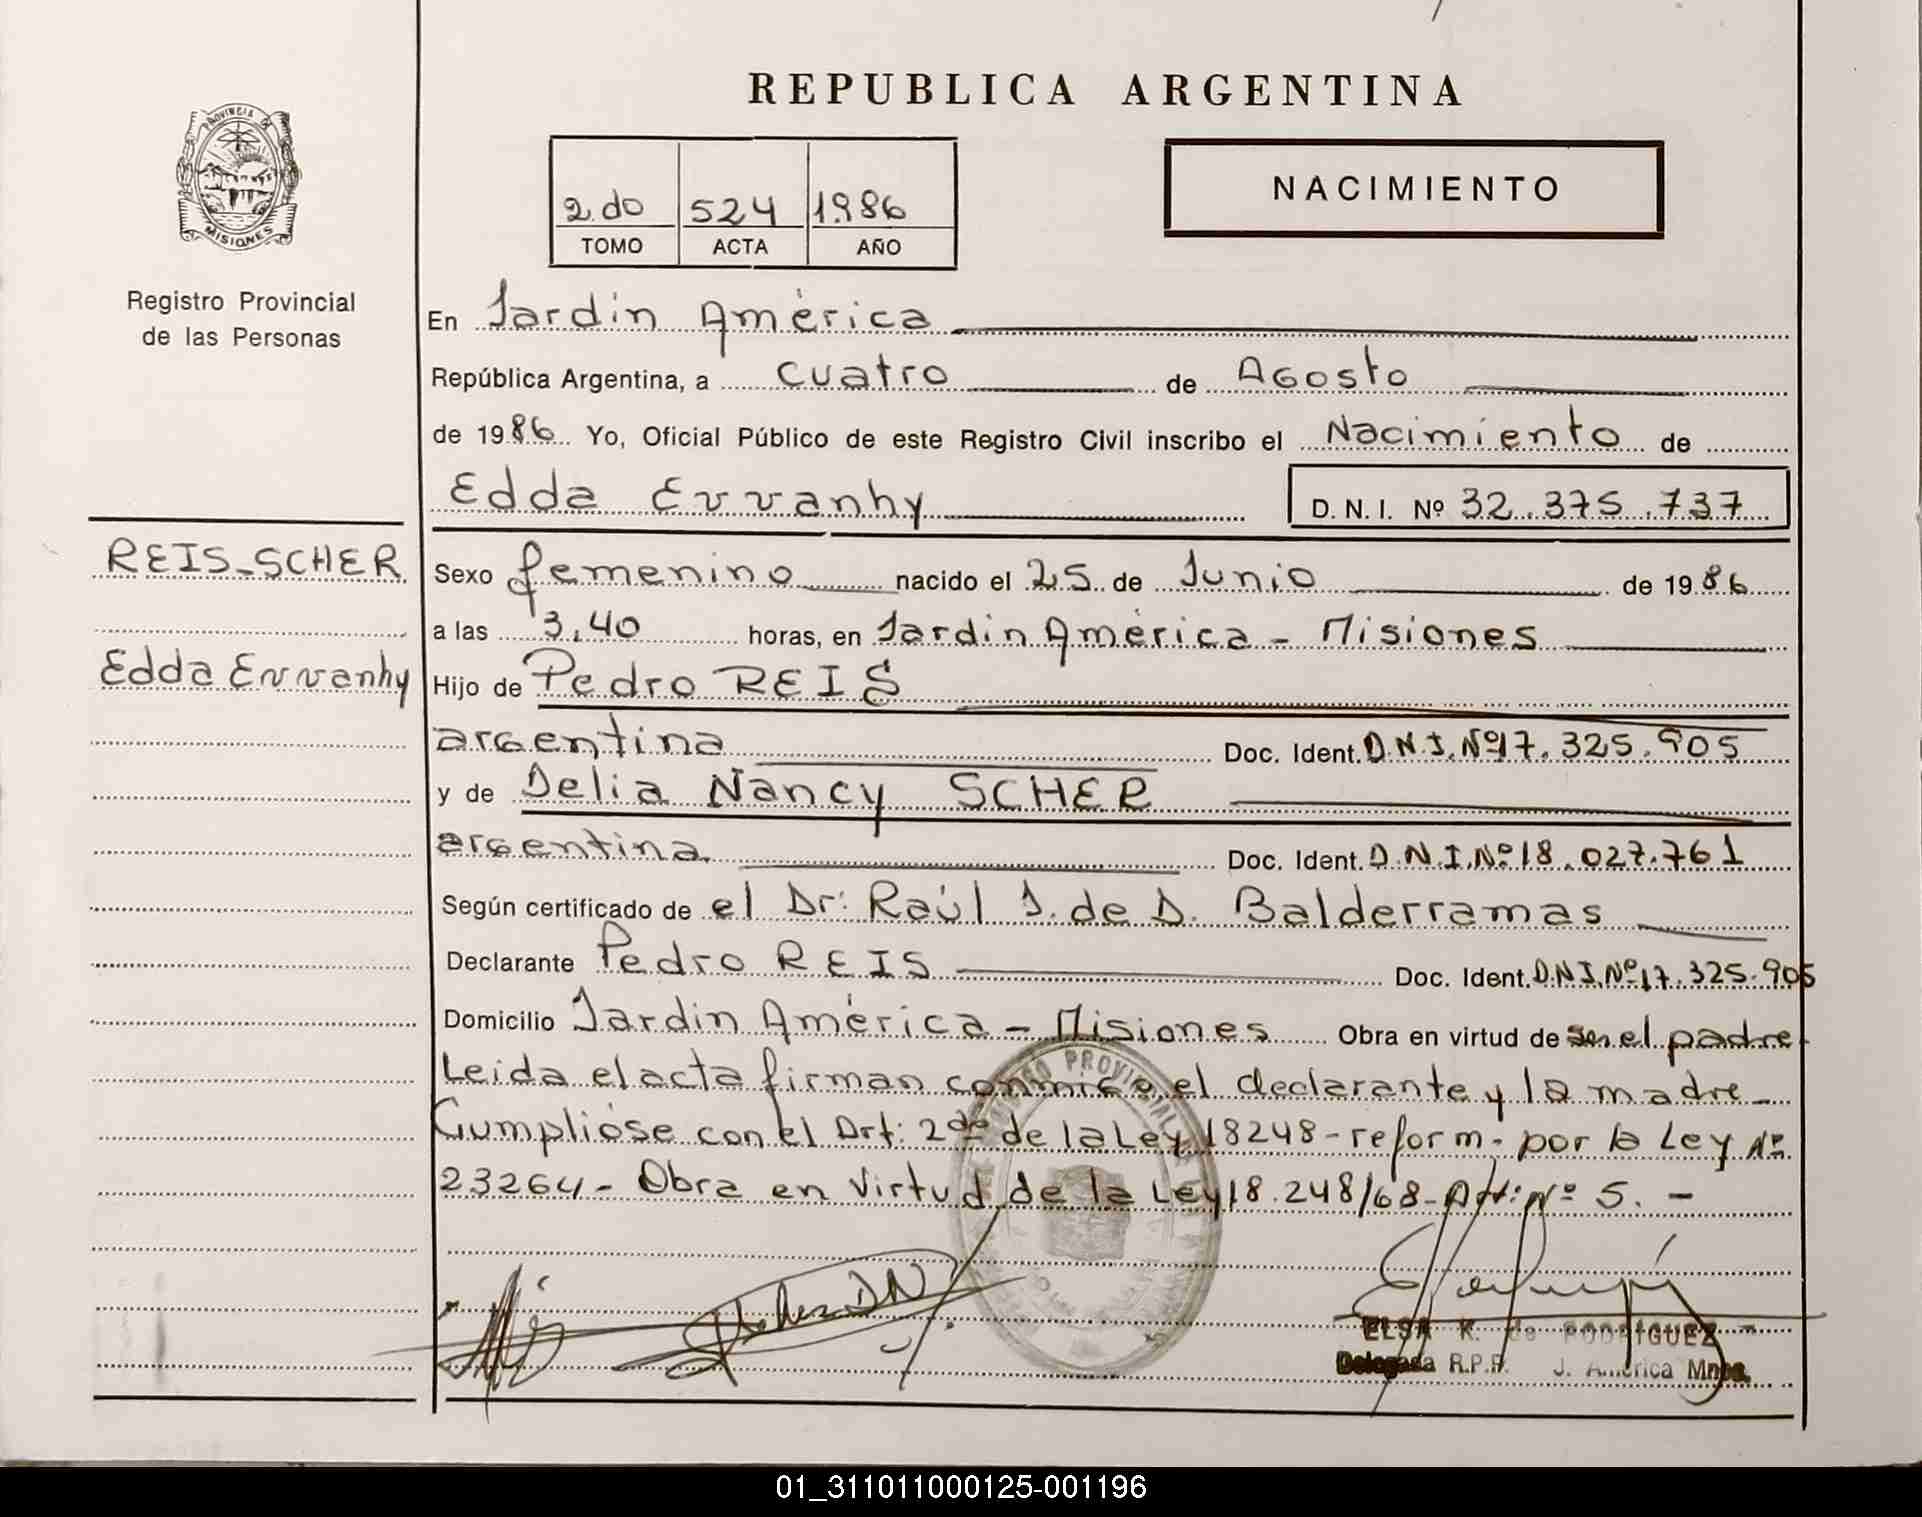 REPUBLICA ARGENTINA
PROVINCIA DE
MISIONES
Registro Provincial
de las Personas
2.do 524 1986
TOMO ACTA AÑO
NACIMIENTO
En Jardin América
República Argentina, a cuatro de Agosto
de 1986 Yo, Oficial Público de este Registro Civil inscribo el Nacimiento de
Edda Evvanhy D. N. I. Nº 32.375.737
REIS_SCHER
Edda Evvanhy
Sexo femenino nacido el 25 de Junio de 1986
a las 3,40 horas, en Jardin América - Misiones
Hijo de Pedro REIS
argentina Doc. Ident. D.N.I.Nº17.325.905
y de Delia Nancy SCHER
argentina Doc. Ident. D.N.I.Nº18.027.761
Según certificado de el Dr: Raúl J. de D. Balderramas
Declarante Pedro REIS Doc. Ident. D.N.I.Nº17.325.905
Domicilio Jardin América - Misiones Obra en virtud de ser el padre
Leida el acta firman conmigo el declarante y la madre
Cumplióse con el Art: 2do de la Ley 18248-reform. por la Ley Nº
23264- Obra en Virtud de la Ley 18.248/68- Art: Nº 5. -
PROVINCIAL
ELSA K. de RODRIGUEZ
Delegada R.P.P. J. América Mnes.
01_311011000125-001196